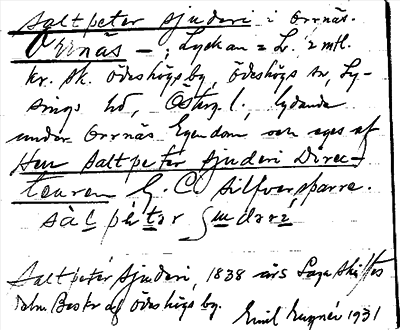 Saltpeter sjuderi i Orrnäs.
Orrnäs —, Lyckan = Lr. 2 mtl.
kr. sk. Ödeshögs by, Ödeshögs sn, Ly-
sings hd, Österg. l., lydande
under Orrnäs Egendom och eges af
Herr Saltpeter sjuderi Direc-
teuren G. C. Silfversparre.
sàlpétər
Saltpeter sjuderi, 1838 års Laga skiftes
Beskr af Ödeshögs by.
Emil 1931